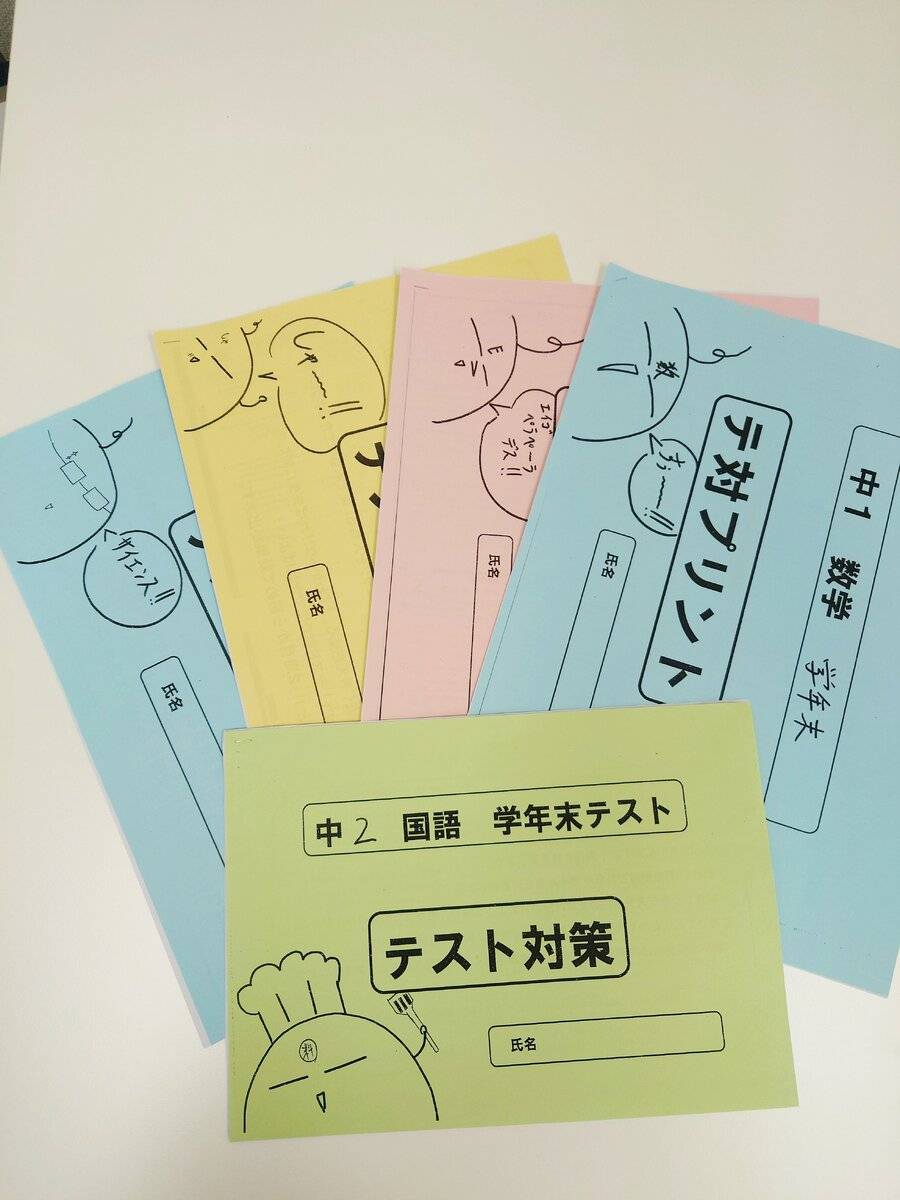 サイエンス!!
氏名
しゃ〜〜!!
氏名
E
エイゴ
ペラペーラ
デス!!
氏名
数
すぅ〜〜!!
テ対プリント
中1 数学 学年末
氏名
中2 国語 学年末テスト
テスト対策
料
氏名